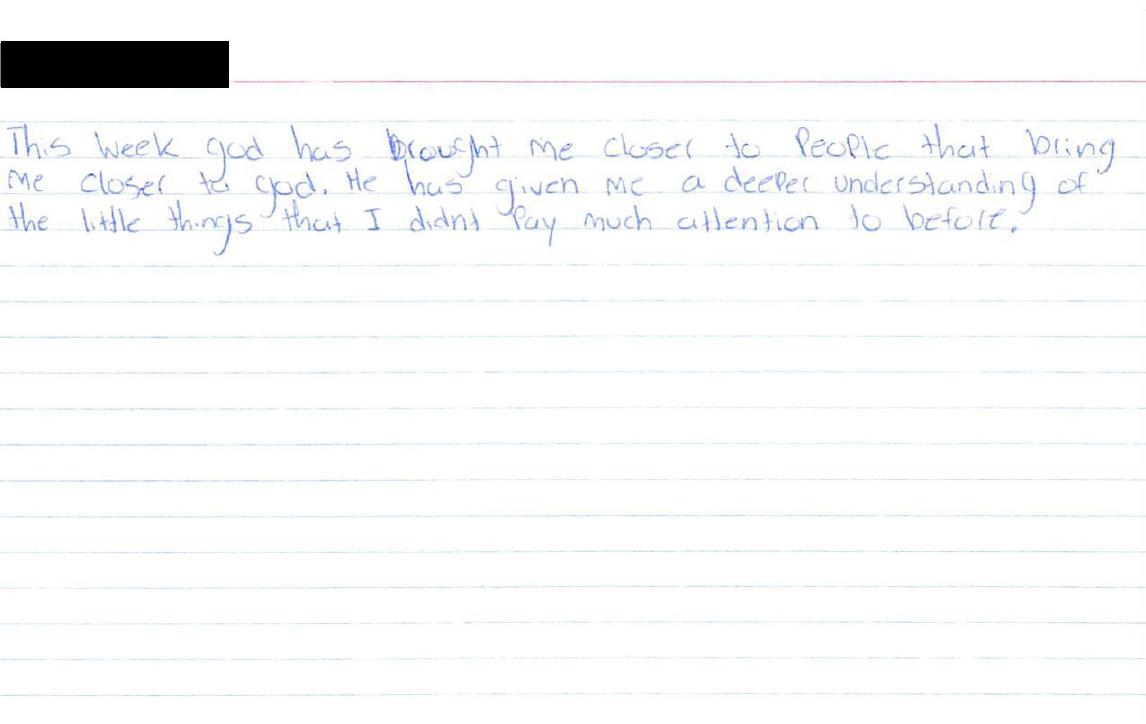 This week god has brought me closer to People that bring
me closer to god. He has given me a deeper understanding of
the little things that I didnt Pay much attention to before.